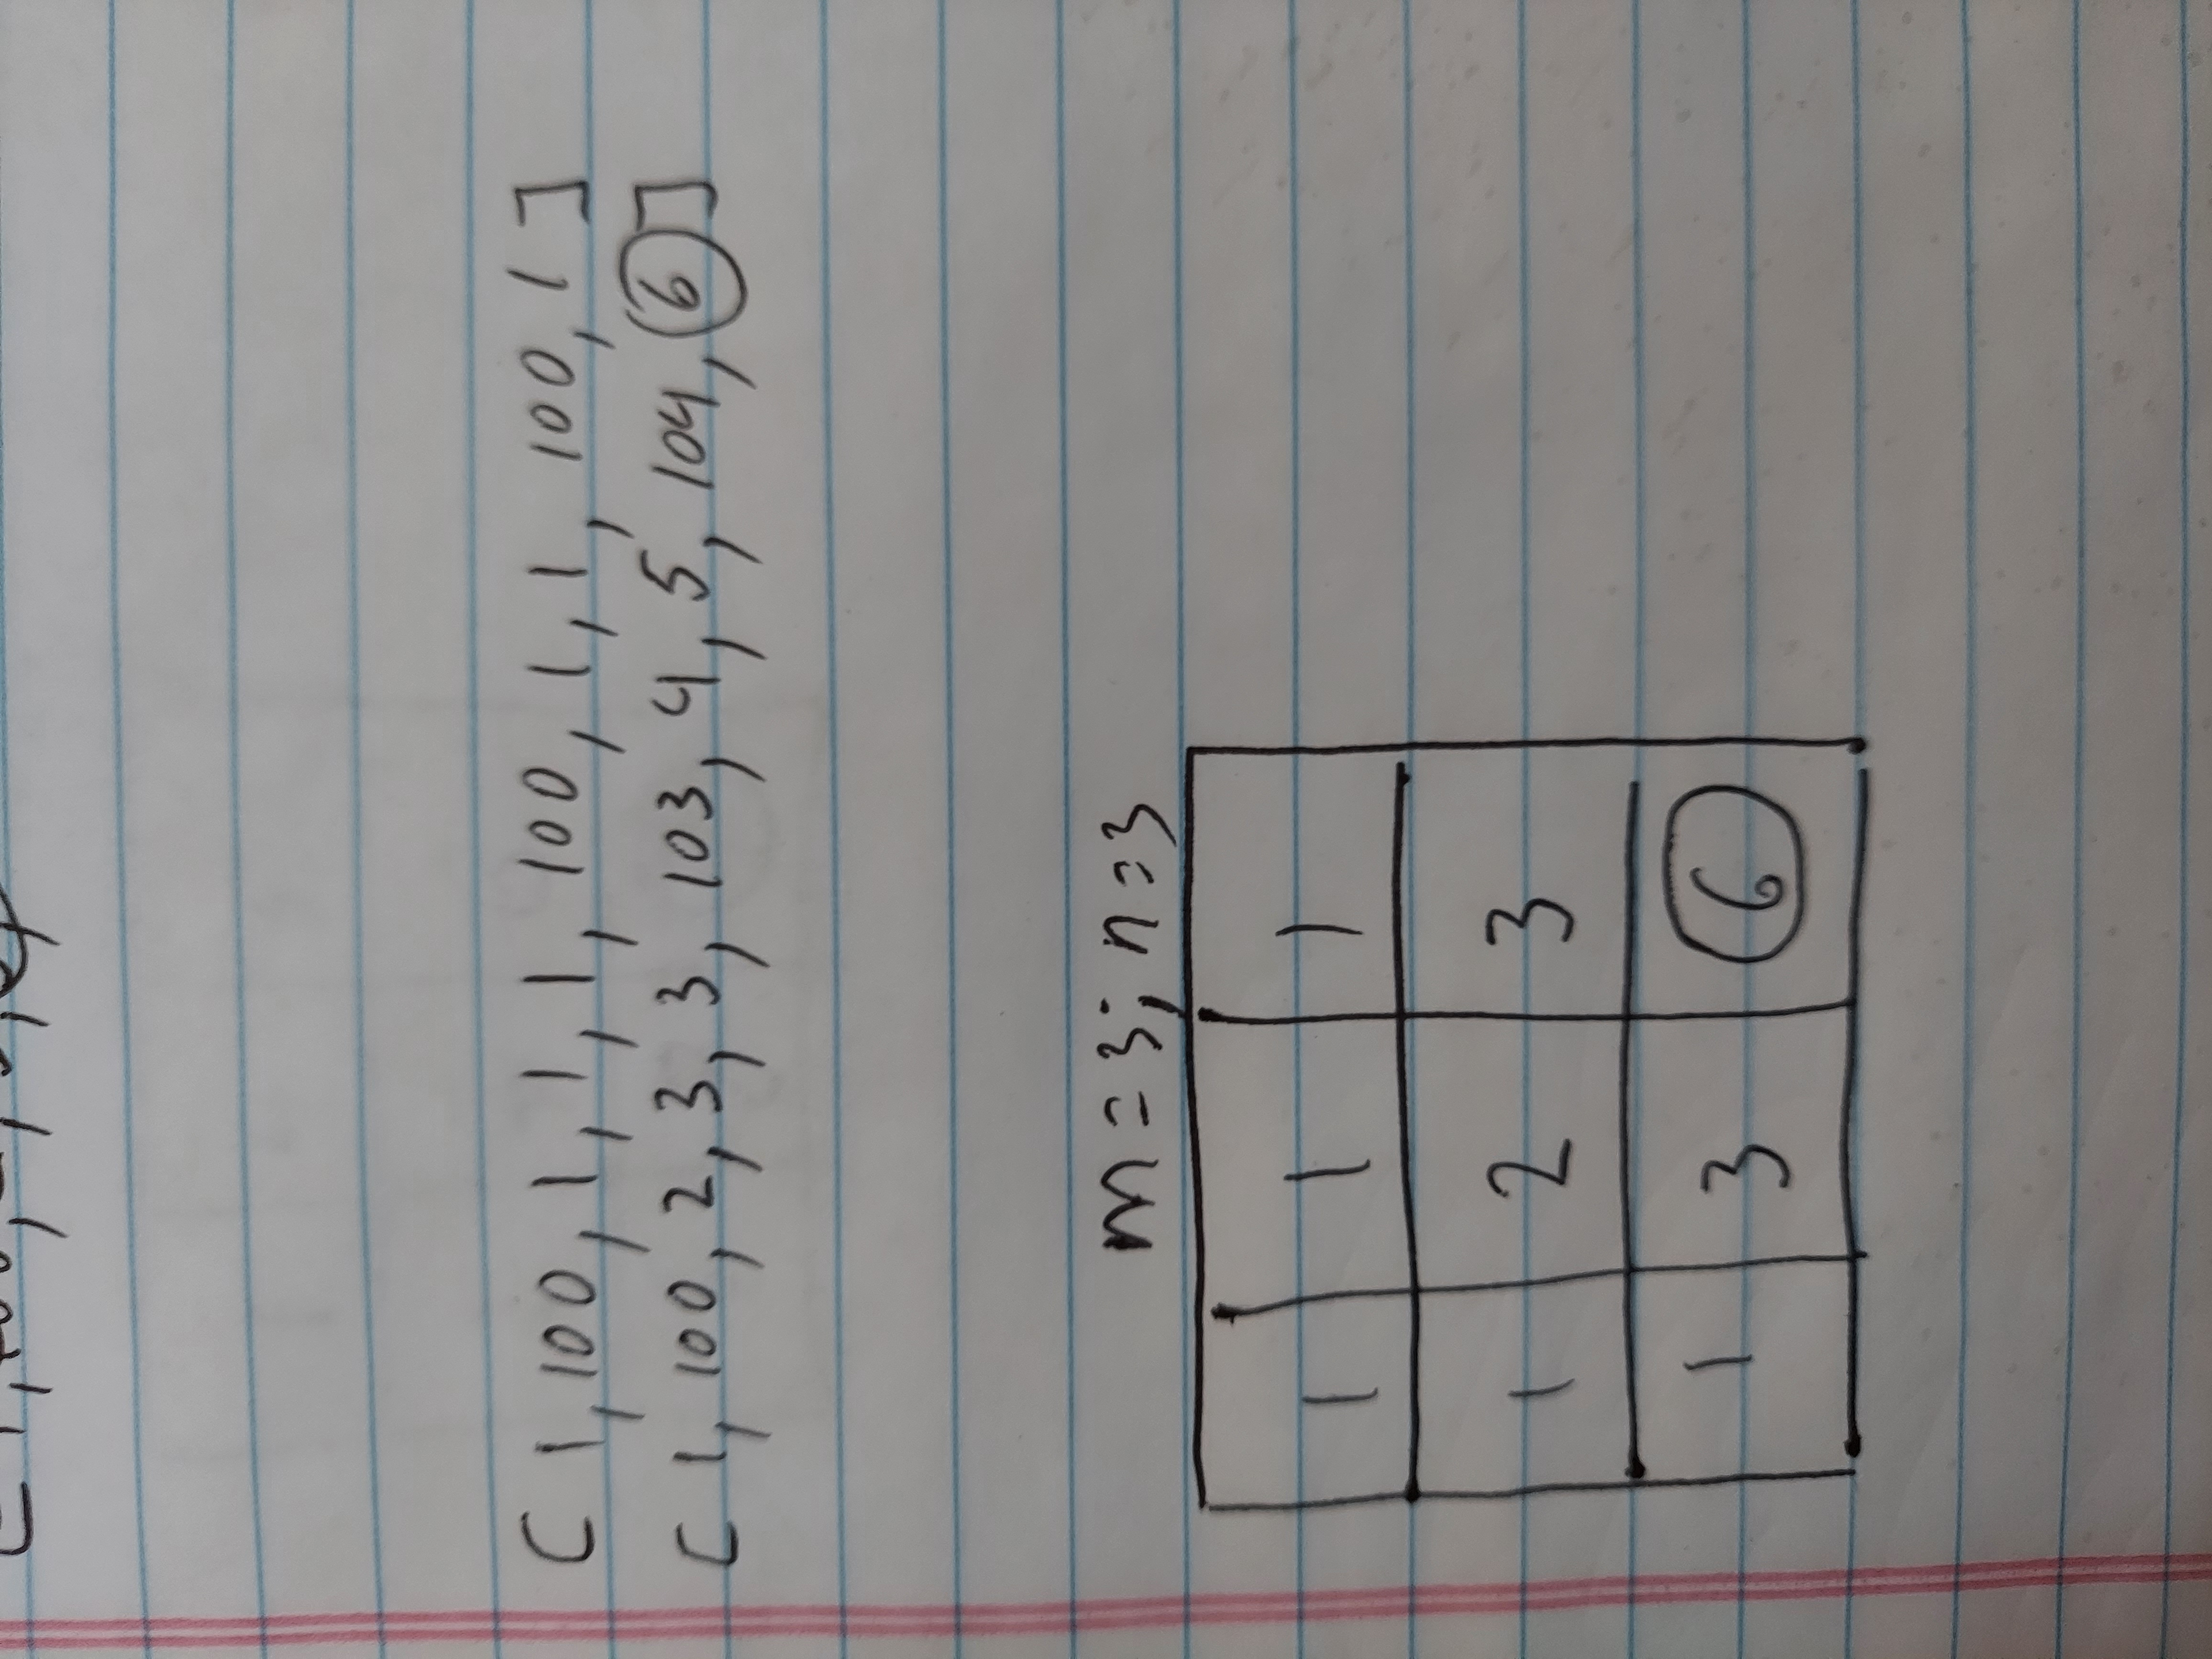 [1, 100, 1, 1, 1, 100, 1, 1, 100, 1]
[1, 100, 2, 3, 3, 103, 4, 5, 104, 6]
m = 3; n = 3
1 1 1
1 2 3
1 3 6